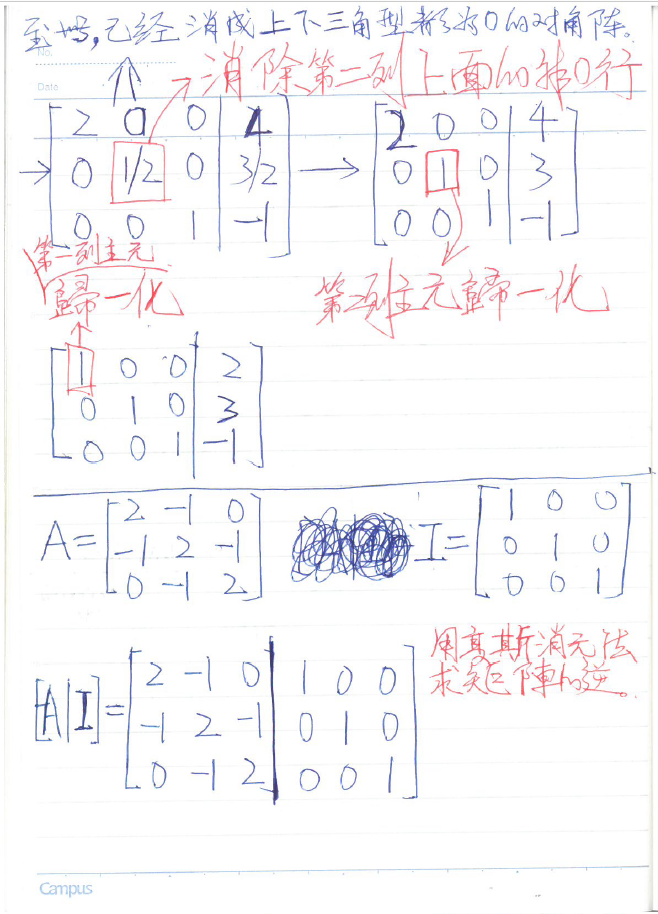 至此,已经消成上下三角型都为0的对角阵。
No.
Date
消除第二列上面的非0行
[2 0 0 | 4] → [2 0 0 | 4]
→ [0 1/2 0 | 3/2] → [0 1 0 | 3]
[0 0 1 | -1] [0 0 1 | -1]
第一列主元
歸一化 第二列主元歸一化
[1 0 0 | 2]
[0 1 0 | 3]
[0 0 1 | -1]
A = [2 -1 0; -1 2 -1; 0 -1 2] I = [1 0 0; 0 1 0; 0 0 1]
用高斯消元法
求矩陣的逆。
[A|I] = [2 -1 0 | 1 0 0; -1 2 -1 | 0 1 0; 0 -1 2 | 0 0 1]
Campus